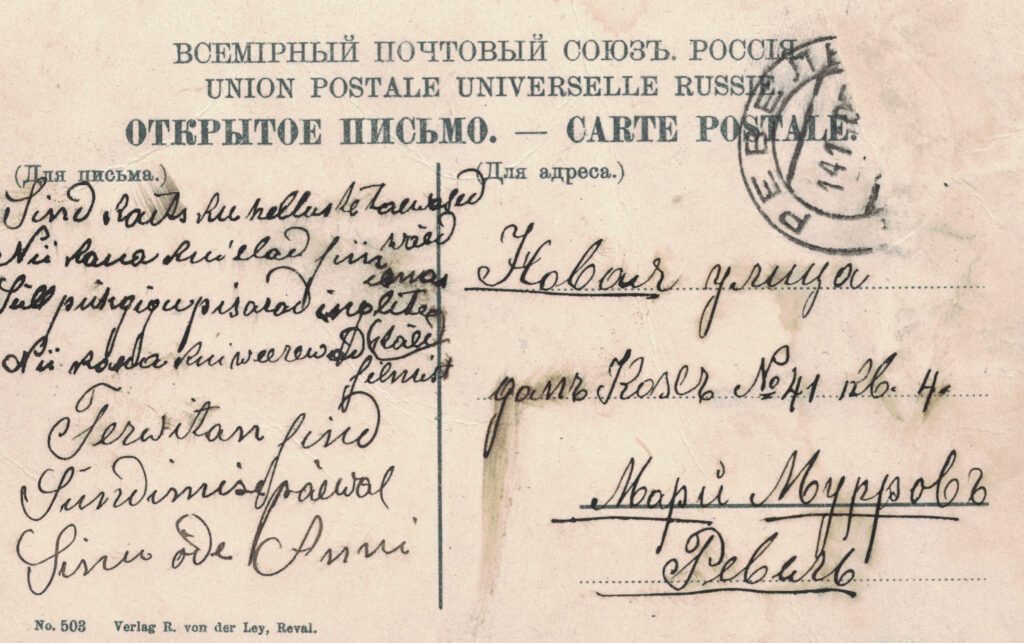 ВСЕМІРНЫЙ ПОЧТОВЫЙ СОЮЗЪ. РОССІЯ.
UNION POSTALE UNIVERSELLE RUSSIE.
ОТКРЫТОЕ ПИСЬМО. — CARTE POSTALE
РЕВЕЛ
(Для письма.)
Sind kaits ku
Nii kaua kui elad siin
Sull pühgigu pisarad
Nii kaua kui weerewad
silmist
Terwitan sind
Sündimise päewal
Sinu õde Anni
(Для адреса.)
Новая улица
домъ № 41 кв. 4.
Мари Мурровъ
Ревель
No. 503 Verlag R. von der Ley, Reval.